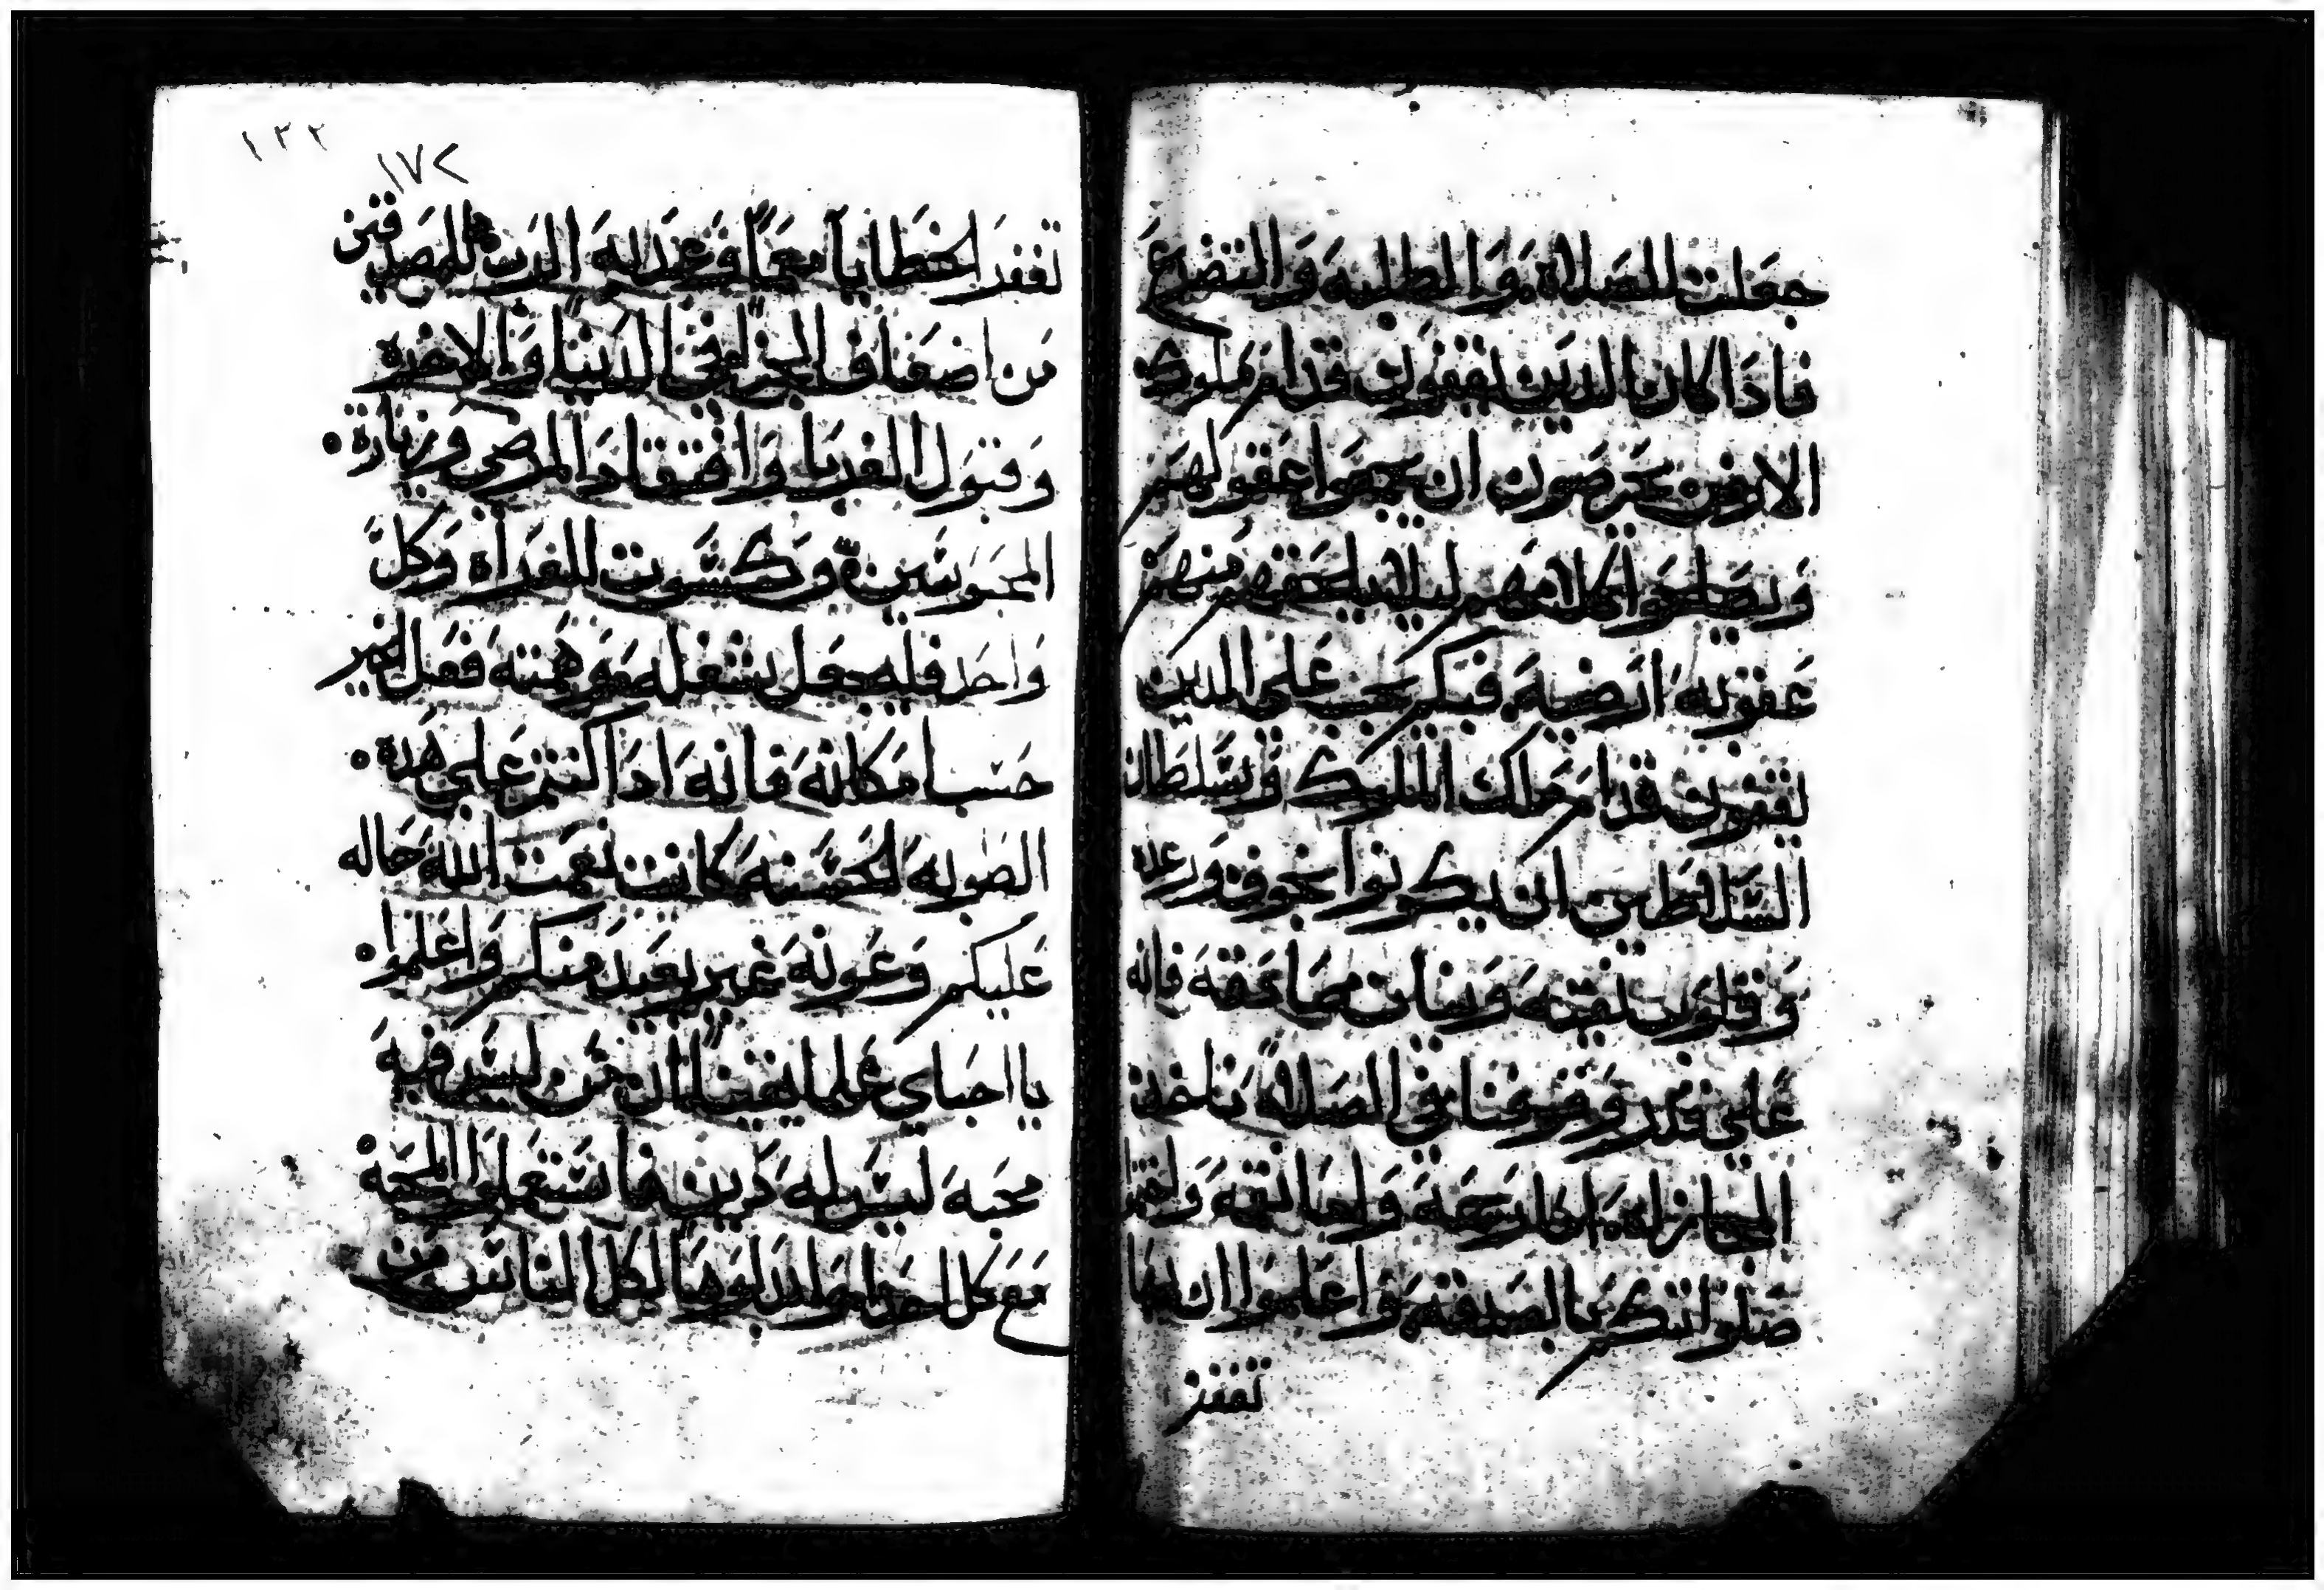 جعلت للصلاة والطلبه والتضرع
فاذا كان الدين يقفون قدام ملوك
الارض يحرصون ان يجمعوا عقولهم
ويصلحوا كلامهم ليلا يلحقهم منهم
عقوبه ارضية فبكم يجب على الدين
يقفون قدام ملك الملوك وسلطان
السلاطين ان يكونوا بخوف ورعدة
وقلوب نقيه ونيات صادقة فانه
على قدر وقوفنا في الصلاة ناخذ
المجازاه ان كان وايقه
صلواتكم بالصدقة واعلموا ان بها
تغفر
١٢٢
١٧٢
تغفر الخطايا معا وعد الرب للمصدقين
من اضعاف الجزا في الدنيا والاخره
وقبول الغربا وافتقاد المرضى وزيارة
المحبوسين وكسوت للعراة وكل
واحد فليجعل شغله وهمته فعل الخير
حسب امكانه فانه ادا كنتم على هده
الصوره الحسنه كانت نعمت الله حاله
عليكم وعونه غير بعيد منكم واعلموا
يا احباي علما يقينا ان من ليس فيه
محبه ليس له دين فاستعملوا المحبة
مع كل احد وابدلوها لكل الناس من